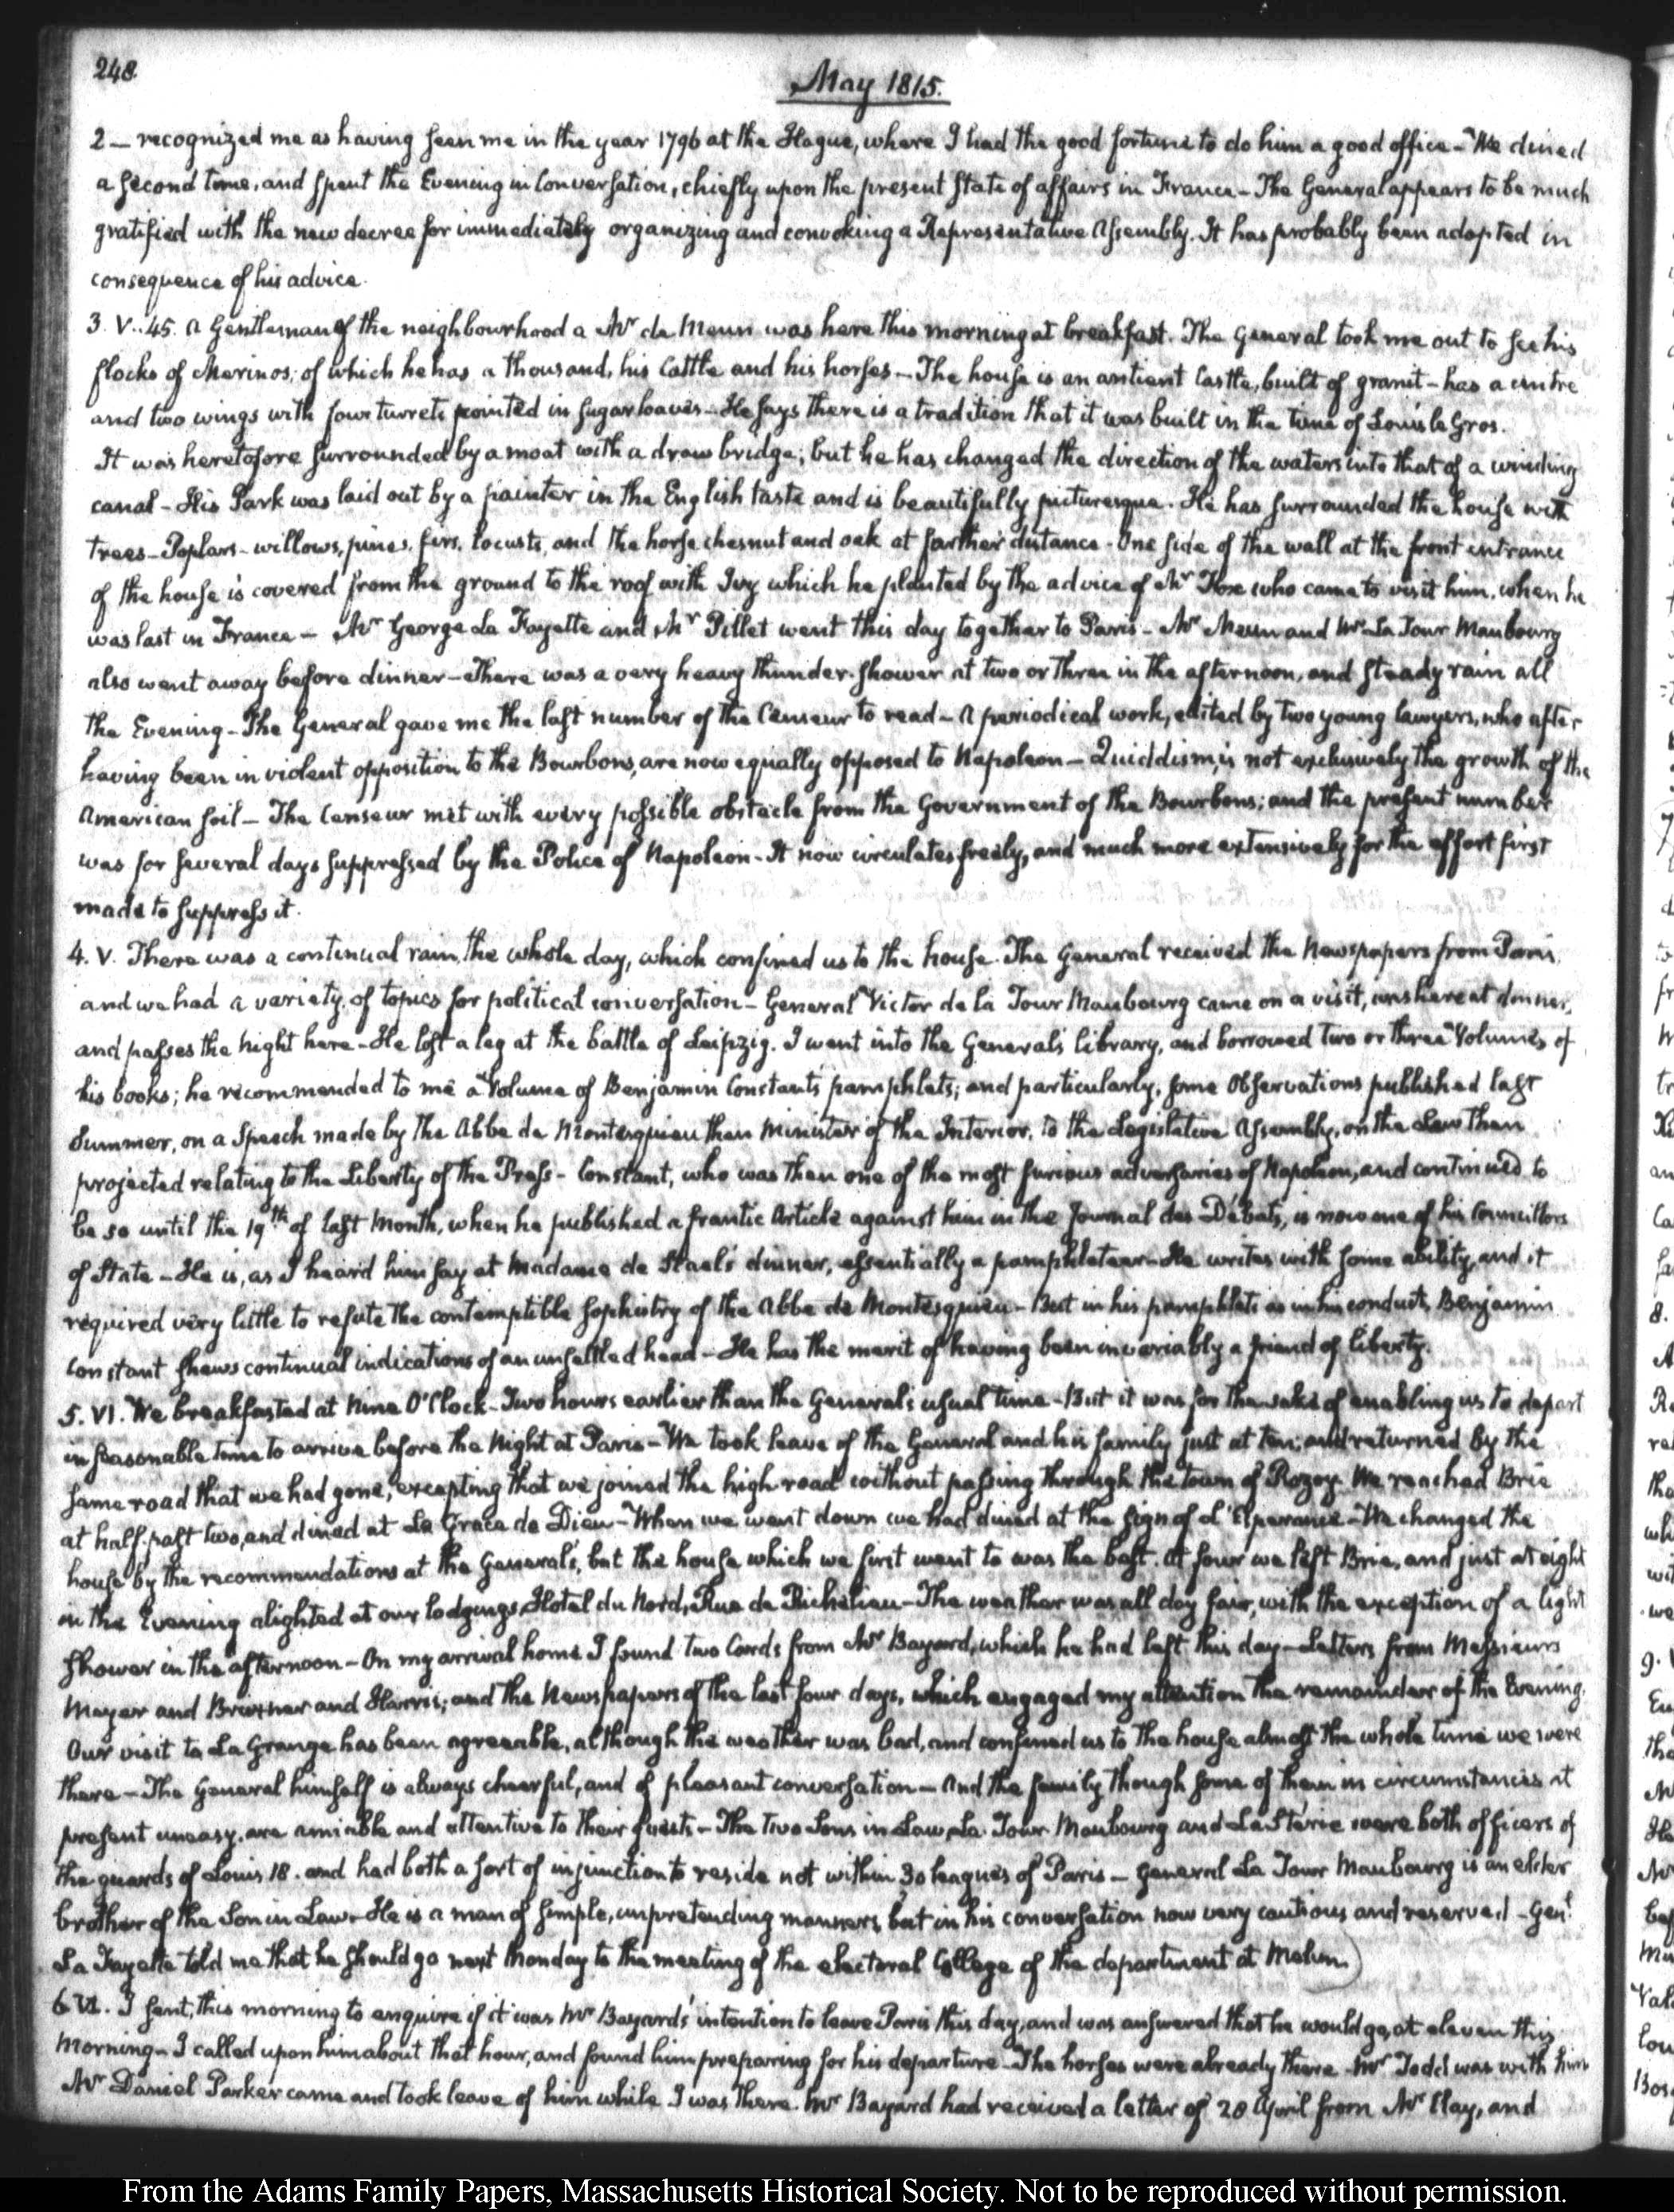 248.
May 1815.
2 — recognized me as having seen me in the year 1796 at the Hague, where I had the good fortune to do him a good office — We dined
a second time, and spent the Evening in Conversation, chiefly upon the present state of affairs in France — The General appears to be much
gratified with the new decree for immediately organizing and convoking a Representative Assembly. It has probably been adopted in
consequence of his advice.
3. V..45. A Gentleman of the neighbourhood a Mr de Meun was here this morning at breakfast. The General took me out to see his
flocks of Merinos; of which he has a thousand, his Cattle and his horses — The house is an antient Castle, built of granit — has a centre
and two wings with four turrets pointed in sugar loaves — He says there is a tradition that it was built in the time of Louis le Gros.
It was heretofore surrounded by a moat with a draw bridge; but he has changed the direction of the waters into that of a winding
canal — His Park was laid out by a painter in the English taste and is beautifully picturesque. He has surrounded the house with
trees — Poplars — willows, pines, firs, locusts, and the horse chesnut and oak at farther distance — One side of the wall at the front entrance
of the house is covered from the ground to the roof with Ivy which he planted by the advice of Mr Fox who came to visit him, when he
was last in France — Mr George La Fayette and Mr Pillet went this day together to Paris — Mr Meun and Mr La Tour Maubourg
also went away before dinner — There was a very heavy thunder-shower at two or three in the afternoon, and steady rain all
the Evening — The General gave me the last number of the Censeur to read — A periodical work, edited by two young lawyers, who after
having been in violent opposition to the Bourbons, are now equally opposed to Napoleon — Quiddism, is not exclusively the growth of the
American soil — The Censeur met with every possible obstacle from the Government of the Bourbons; and the present number
was for several days suppressed by the Police of Napoleon — It now circulates freely, and much more extensively for the effort first
made to suppress it.
4. V. There was a continual rain, the whole day, which confined us to the house. The General received the Newspapers from Paris,
and we had a variety of topics for political conversation — General Victor de la Tour Maubourg came on a visit, was here at dinner,
and passes the night here — He lost a leg at the battle of Leipzig. I went into the General's library, and borrowed two or three Volumes of
his books; he recommended to me a Volume of Benjamin Constant's pamphlets; and particularly, some Observations published last
Summer, on a Speech made by the Abbé de Montesquieu then Minister of the Interior, to the Legislative Assembly, on the Law then
projected relating to the Liberty of the Press — Constant, who was then one of the most furious adversaries of Napoleon, and continued to
be so until the 19th of last Month, when he published a frantic Article against him in the Journal des Débats, is now one of his Councillors
of State — He is, as I heard him say at Madame de Stael's dinner, essentially a pamphleteer — He writes with some ability, and it
required very little to refute the contemptible sophistry of the Abbé de Montesquieu — But in his pamphlets as in his conduct, Benjamin
Constant shews continual indications of an unsettled head — He has the merit of having been invariably a friend of liberty.
5. VI. We breakfasted at Nine O'Clock — Two hours earlier than the General's usual time — But it was for the sake of enabling us to depart
in seasonable time to arrive before the Night at Paris — We took leave of the General and his family just at ten; and returned by the
same road that we had gone, excepting that we joined the high road without passing through the town of Rozoy. We reached Brie
at half past two, and dined at La Grace de Dieu — When we went down we had dined at the sign of l'Esperance — We changed the
house by the recommendations at the General's, but the house which we first went to was the best. At four we left Brie, and just at eight
in the Evening alighted at our lodgings, Hotel du Nord, Rue de Richelieu — The weather was all day fair, with the exception of a light
shower in the afternoon — On my arrival home I found two Cards from Mr Bayard, which he had left this day — Letters from Messieurs
Meyer and Brüxner and Harris; and the Newspapers of the last four days, which engaged my attention the remainder of the Evening.
Our visit to La Grange has been agreeable, although the weather was bad, and confined us to the house almost the whole time we were
there — The General himself is always cheerful, and of pleasant conversation — And the family though some of them in circumstances at
present uneasy, are amiable and attentive to their guests — The two Sons in Law, La Tour Maubourg and La Stérie were both officers of
the guards of Louis 18. and had both a sort of injunction to reside not within 30 leagues of Paris — General La Tour Maubourg is an elder
brother of the Son in Law — He is a man of simple, unpretending manners, but in his conversation now very cautious and reserved — Genl.
La Fayette told me that he should go next Monday to the meeting of the electoral College of the department at Melun.
6. VI. I sent, this morning to enquire if it was Mr Bayard's intention to leave Paris this day, and was answered that he would go, at eleven this
Morning — I called upon him about that hour, and found him preparing for his departure — The horses were already there. Mr Todd was with him
Mr Daniel Parker came and took leave of him while I was there. Mr Bayard had received a letter of 28 April from Mr Clay, and
From the Adams Family Papers, Massachusetts Historical Society. Not to be reproduced without permission.